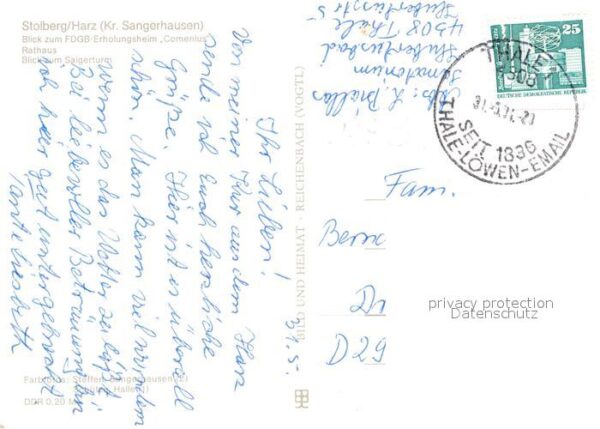 Stolberg/Harz (Kr. Sangerhausen)
Blick zum FDGB-Erholungsheim „Comenius"
Rathaus
Blick zum Saigerturm
31.5.
Ihr Lieben!
Von meiner Kur aus dem Harz
sende ich Euch herzliche
Grüße. Hier ist es überall
schön. Man kann viel wandern
wenn es das Wetter zuläßt.
Bei liebevoller Betreuung bin
ich hier gut untergebracht.
Tante Liesbeth
Farbfotos: Steffen, Sangerhausen
Halle
DDR 0,20 M
BILD UND HEIMAT · REICHENBACH (VOGTL)
Abs: L.
Sanatorium
Hubertusbad
4308 Thale
Hubertusstr. 5
25
DEUTSCHE DEMOKRATISCHE REPUBLIK
THALE 1
4308
SEIT 1836
THALE-LÖWEN-EMAIL
Fam.
Bern
D
D 29
privacy protection
Datenschutz